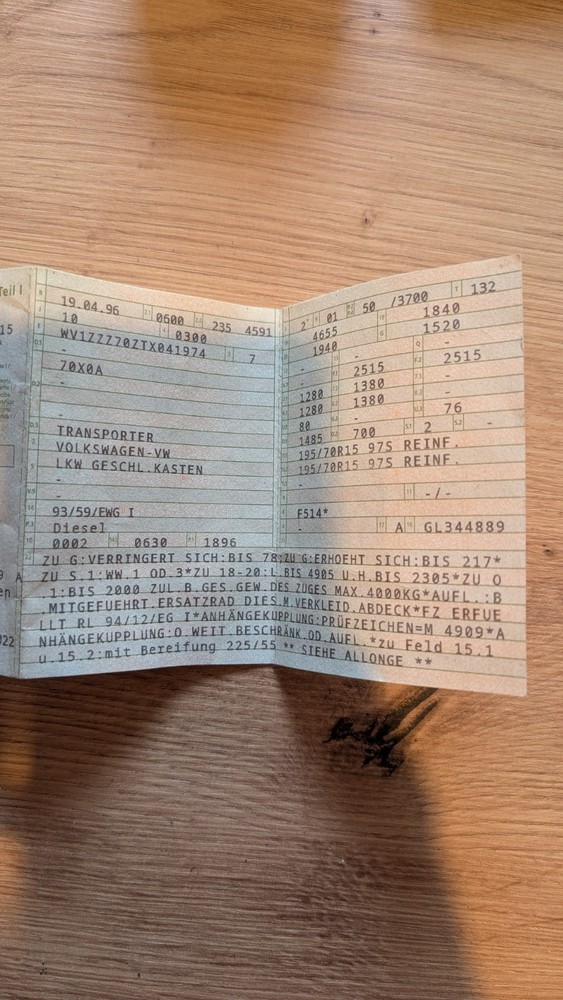 Teil I
15
9 A
en
022
19.04.96 0600 235 4591
10 0300
WV1ZZZ70ZTX041974 7
-
70X0A
-
-
TRANSPORTER
VOLKSWAGEN-VW
LKW GESCHL.KASTEN
-
-
93/59/EWG I
Diesel
0002 0630 1896
2 01 50 /3700 132
4655 1840
1940 1520
- - -
- 2515 2515
1280 1380 -
1280 1380 -
80 - 76
1485 700 2 -
195/70R15 97S REINF.
195/70R15 97S REINF.
-
- -/-
F514*
- A GL344889
ZU G:VERRINGERT SICH:BIS 78;ZU G:ERHOEHT SICH:BIS 217*
ZU S.1:WW.1 OD.3*ZU 18-20:L.BIS 4905 U.H.BIS 2305*ZU O
.1:BIS 2000 ZUL.B.GES.GEW.DES ZUGES MAX.4000KG*AUFL.:B
.MITGEFUEHRT.ERSATZRAD DIES.M.VERKLEID.ABDECK*FZ ERFUE
LLT RL 94/12/EG I*ANHÄNGEKUPPLUNG:PRÜFZEICHEN=M 4909*A
NHÄNGEKUPPLUNG:O.WEIT.BESCHRÄNK.OD.AUFL.*zu Feld 15.1
u.15.2:mit Bereifung 225/55 ** SIEHE ALLONGE **